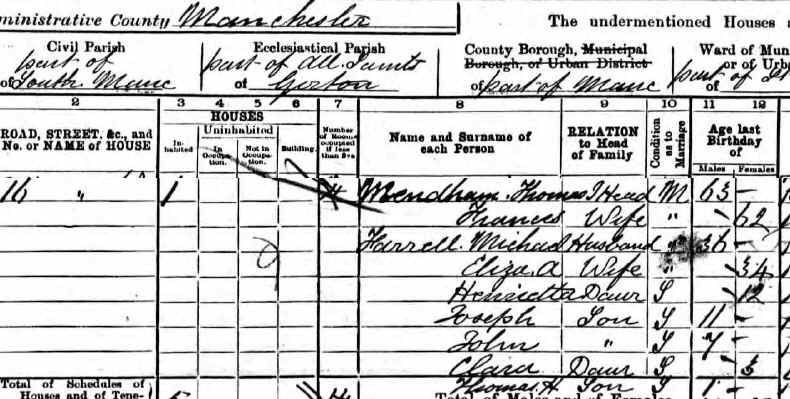 ministrative County Manchester The undermentioned Houses a
Civil Parish Ecclesiastical Parish County Borough, Municipal Ward of Mun
part of part of All Saints Borough, or Urban District or of Urba
of South Manc of Gorton of part of Manc part of
2 3 4 5 6 7 8 9 10 11 12
ROAD, STREET, &c., and No. or NAME of HOUSE HOUSES In-habited Uninhabited In Occupa-tion. Not in Occupa-tion. Building. Number of Rooms occupied if less than five Name and Surname of each Person RELATION to Head of Family Condition as to Marriage Age last Birthday of Males Females
16 " 1 4 Mendham Thomas J Head M 63 -
Frances Wife " - 62
Farrell Michael Husband " 36 -
Eliza. A Wife " - 34
Henrietta Daur S - 12
Joseph Son S 11 -
John " S 7 -
Clara Daur S - 3
Thomas. H Son S 1 -
Total of Schedules of Houses and of Tene- 4 Total of Males and of Females